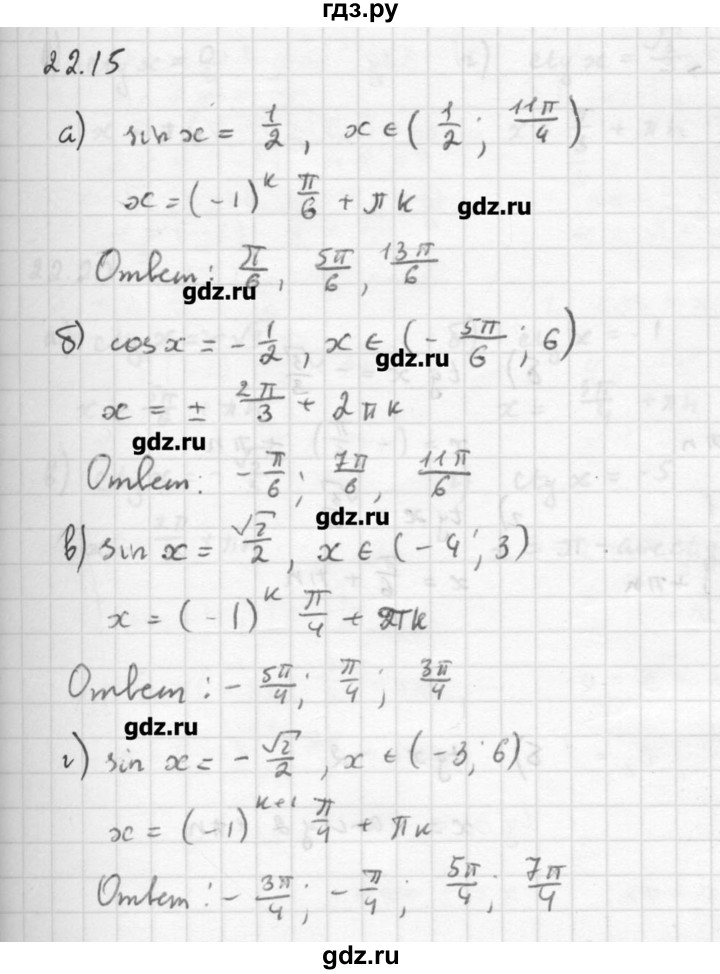 гдз.ру
22.15
а) sin x = 1/2, x ∈ (1/2; 11π/4)
x = (-1)^k π/6 + πk
gdz.ru
Ответ: π/6, 5π/6, 13π/6
gdz.ru
б) cos x = -1/2, x ∈ (-5π/6; 6)
gdz.ru
x = ± 2π/3 + 2πk
gdz.ru
Ответ: -π/6; 7π/6, 11π/6
gdz.ru
в) sin x = √2/2, x ∈ (-4; 3)
x = (-1)^k π/4 + πk
Ответ: -5π/4; π/4; 3π/4
gdz.ru
г) sin x = -√2/2, x ∈ (-3; 6)
x = (-1)^k+1 π/4 + πk
Ответ: -3π/4; -π/4; 5π/4; 7π/4
gdz.ru